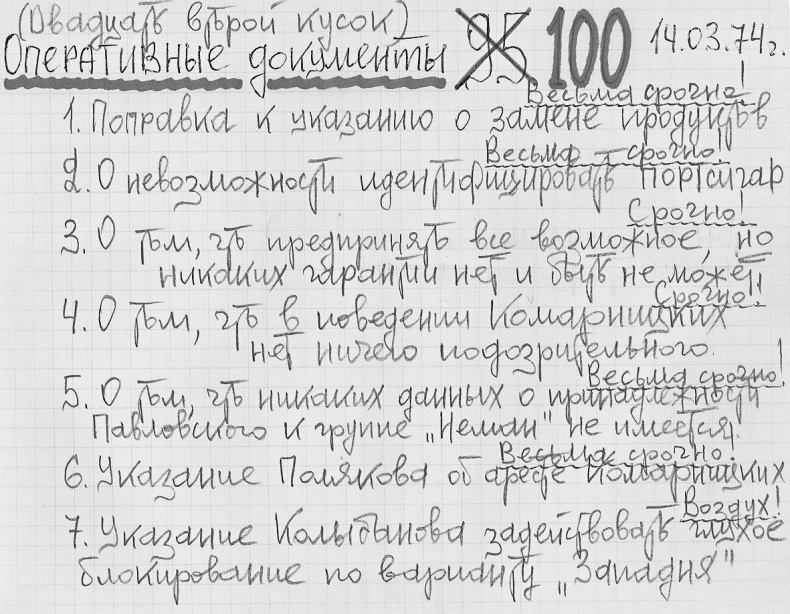 (Двадцать второй кусок)
Оперативные документы 95 100 14.03.74г.
Весьма срочно!
1. Поправка к указанию о замене продуктов
Весьма срочно!
2. О невозможности идентифицировать портсигар
Срочно!
3. О том, что предпринять все возможное, но
никаких гарантий нет и быть не может!
Срочно!
4. О том, что в поведении Комарницких
нет ничего подозрительного.
Весьма срочно!
5. О том, что никаких данных о принадлежности
Павловского к группе „Неман" не имеется.
Весьма срочно.
6. Указание Полякова об аресте Комарницких
Воздух!
7. Указание Колыбанова задействовать глухое
блокирование по варианту „Западня"